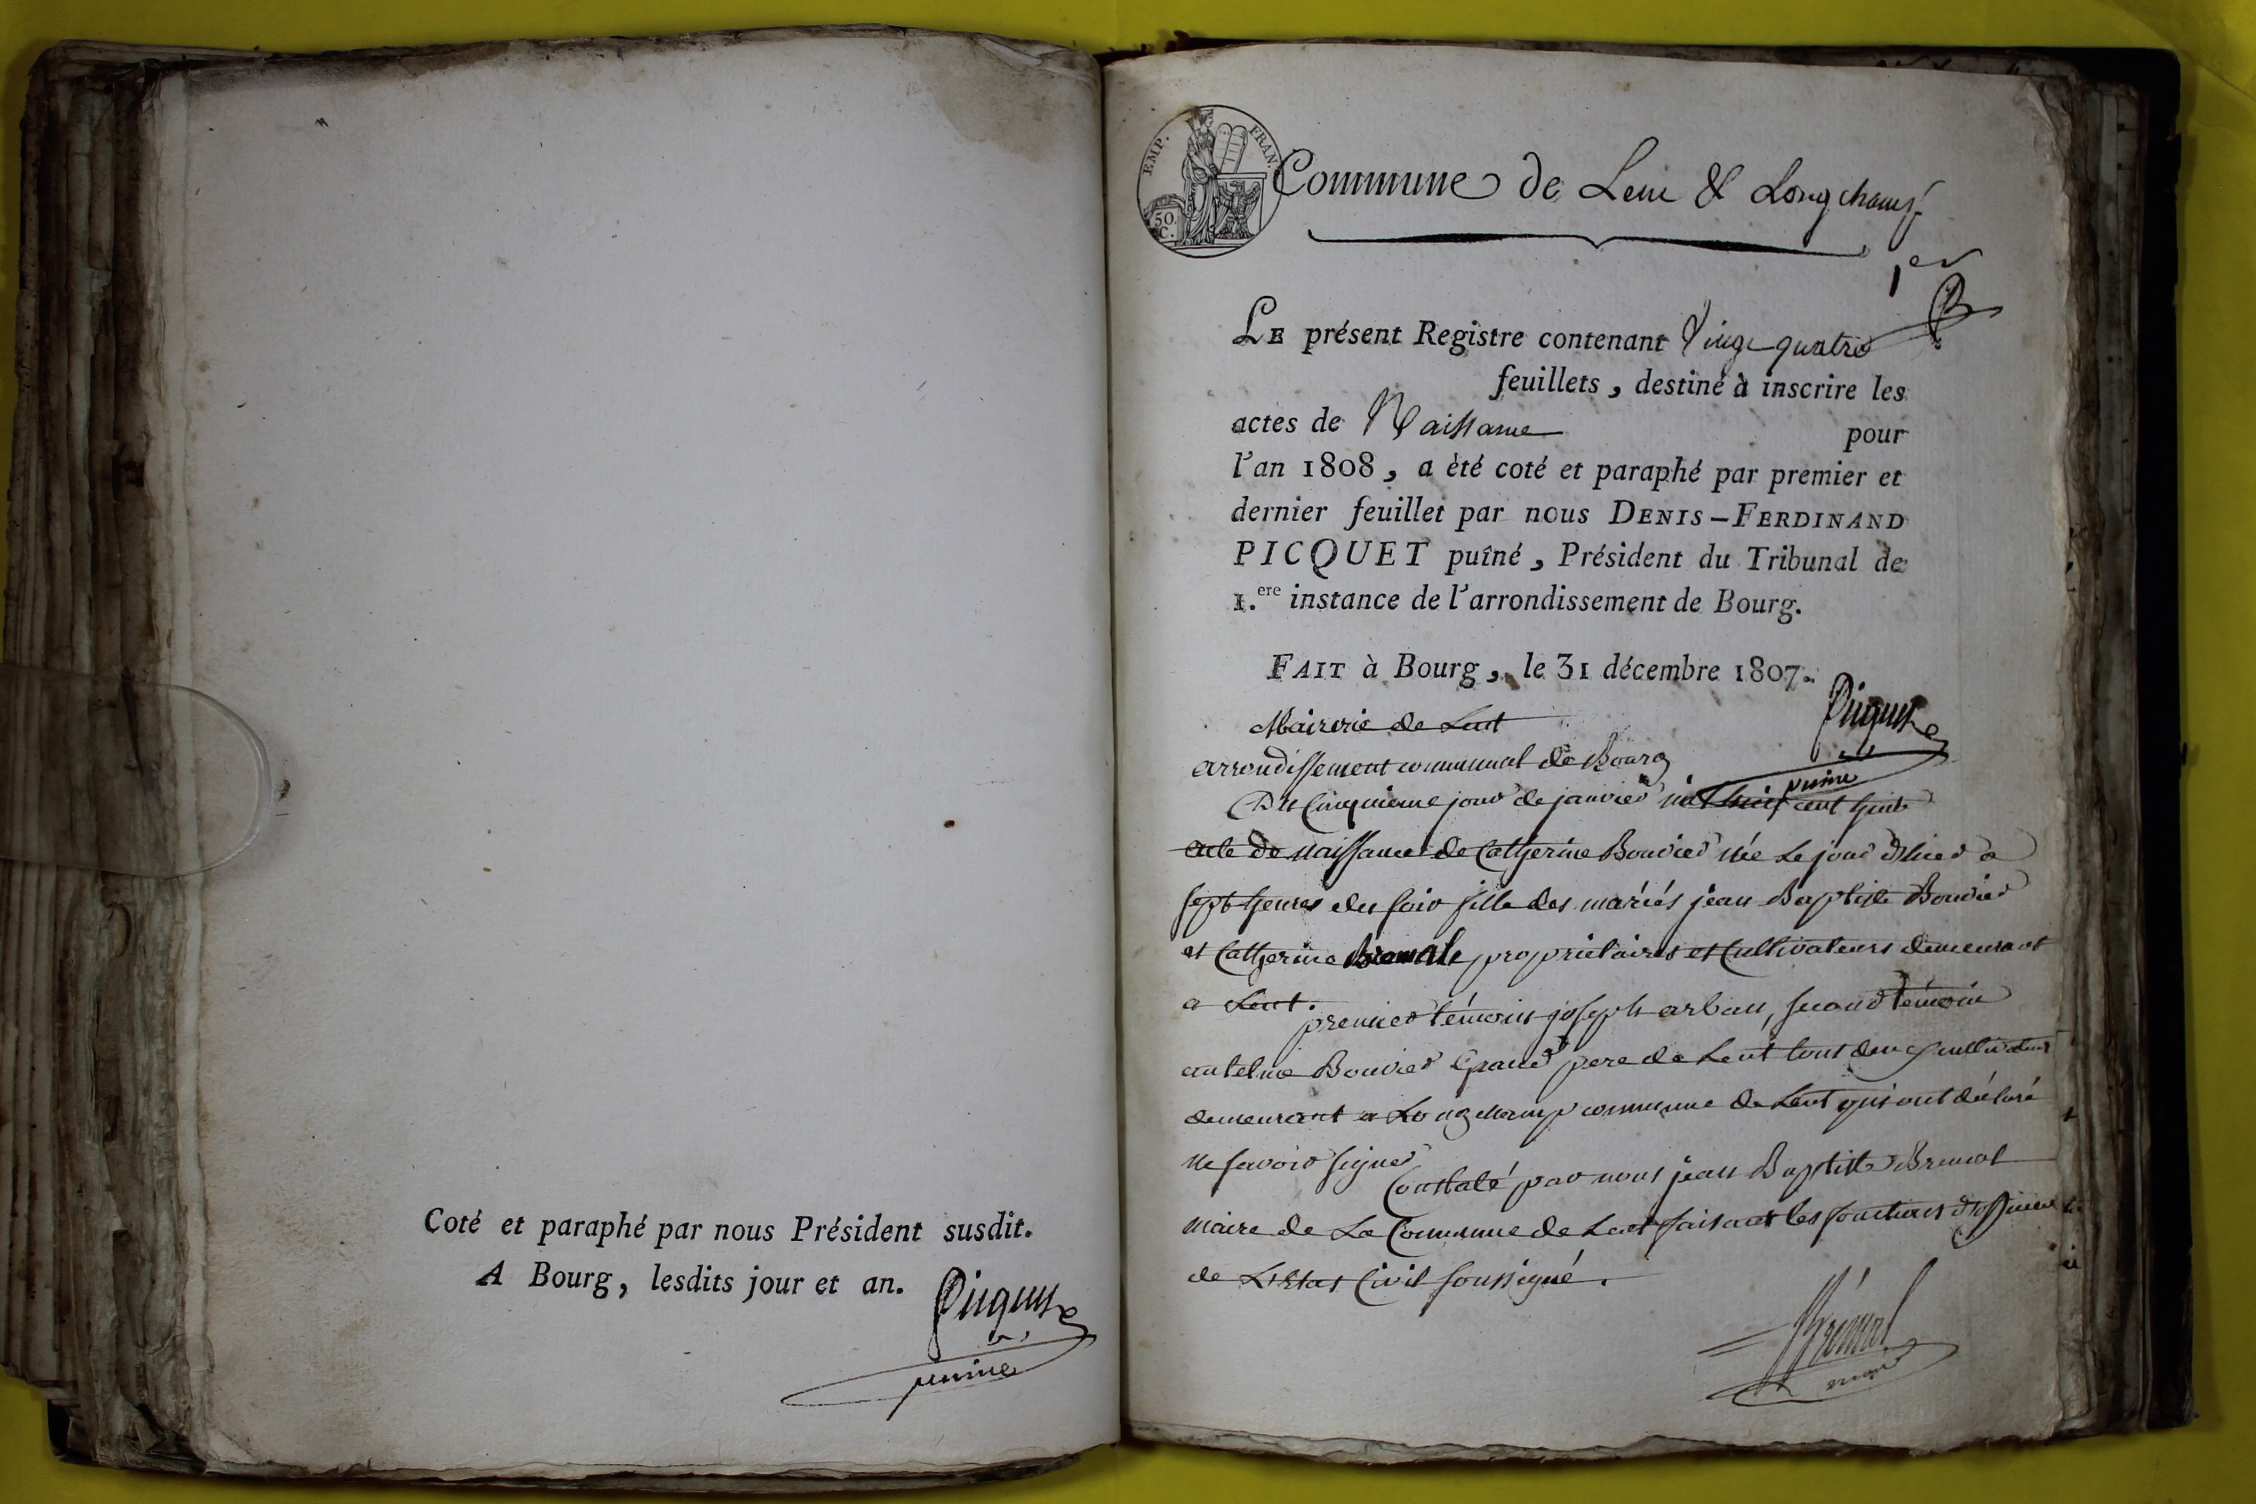 Coté et paraphé par nous Président susdit.
A Bourg, lesdits jour et an.
Picquet
puiné
EMP. FRAN.
50 C.
Commune de Lent & Longchamp
1er
LE présent Registre contenant Vingt quatre
feuillets, destiné à inscrire les
actes de Naissance pour
l'an 1808, a été coté et paraphé par premier et
dernier feuillet par nous DENIS-FERDINAND
PICQUET puîné, Président du Tribunal de
1.ere instance de l'arrondissement de Bourg.
FAIT à Bourg, le 31 décembre 1807.
Picquet
puiné
Mairerie de Lent
arrondissement communal de Bourg
Du Cinquieme jour de janvier mil huit cent huit
acte de naissance de Catherine Bouvier née le jour d'hier a
sept heures du soir fille des mariés jean Baptiste Bouvier
et Catherine propriétaires et Cultivateurs demeurant
a Lent.
premier témoin joseph arban, second témoin
antelme Bouvier Grand pere de Lent tous deux cultivateurs
demeurant a Longchamp commune de Lent qui ont déclaré
ne savoir signer
Constaté par nous jean Baptiste Brémal
maire de La Commune de Lent faisant les fonctions d'officier
de L'Etat Civil soussigné.
Brémal
maire